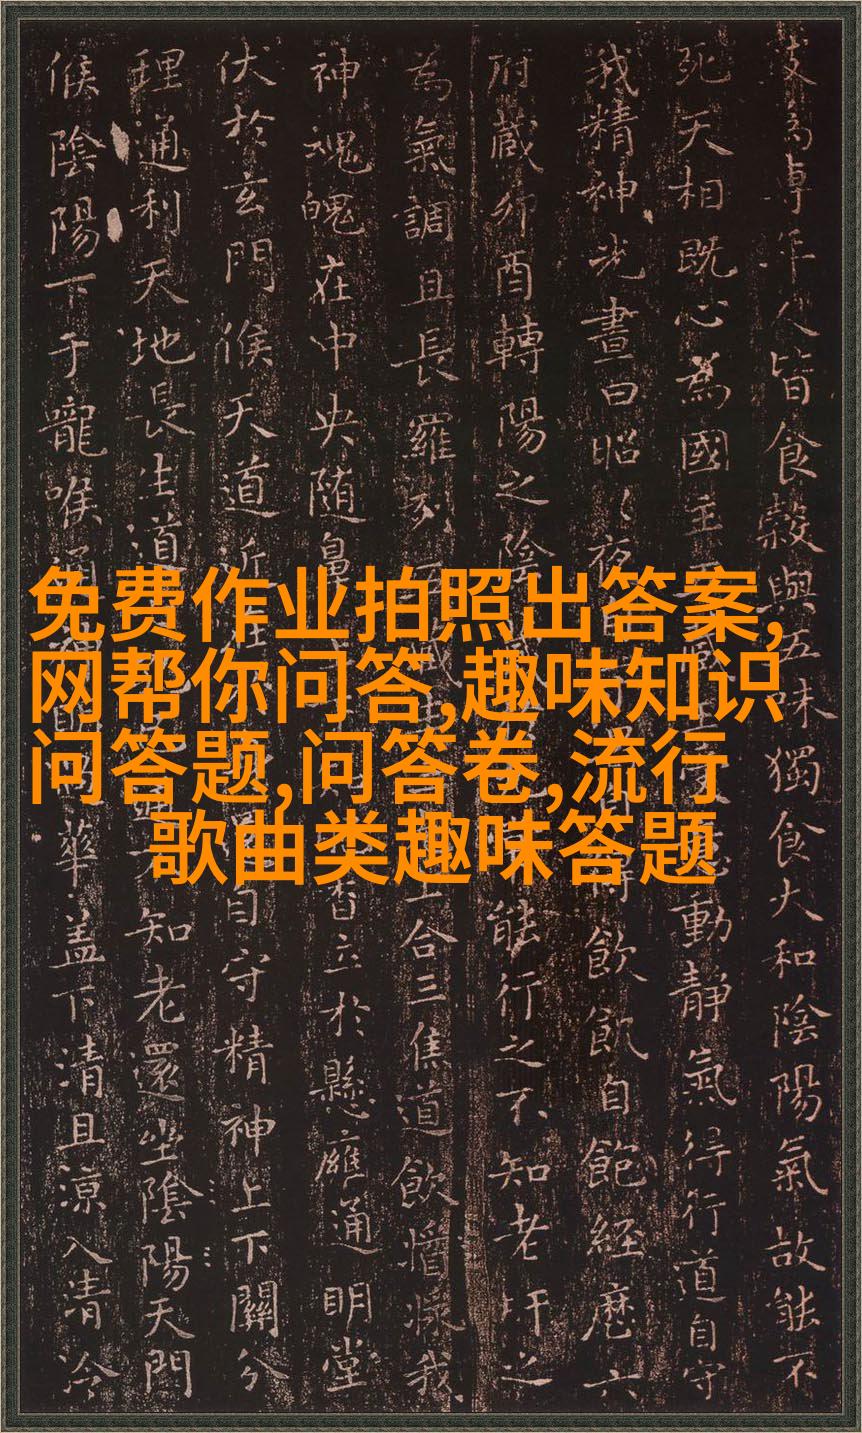 免费作业拍照出答案,
网帮你问答,趣味知识
问答题,问答卷,流行
歌曲类趣味答题
專年人皆食穀與五味獨食大和陰陽氣故能不
死天相既心為國主動靜氣得行道自守
我精神光晝日昭〻夜飲飢自飽經歷六
府藏卯酉轉陽之陰能行之不知老肝之
為氣調且長羅列合三焦道飲醬漿我
神魂魄在中央随鼻香立於懸膺通明堂
伏於玄門候天道近在自守精神上下關分
理通利天地長生道知老還坐陰陽天門
候陰陽下于嚨喉通華蓋下清且涼入清冷